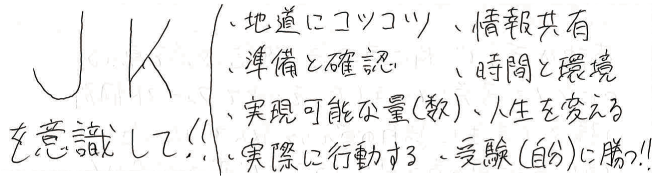 JK
を意識して!!
、地道にコツコツ
、準備と確認
、実現可能な量(数)
、実際に行動する
、情報共有
、時間と環境
、人生を変える
、受験(自分)に勝つ!!